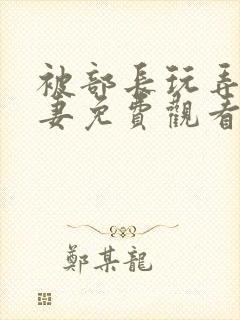 被部長玩弄
妻免費觀看
鄭某龍